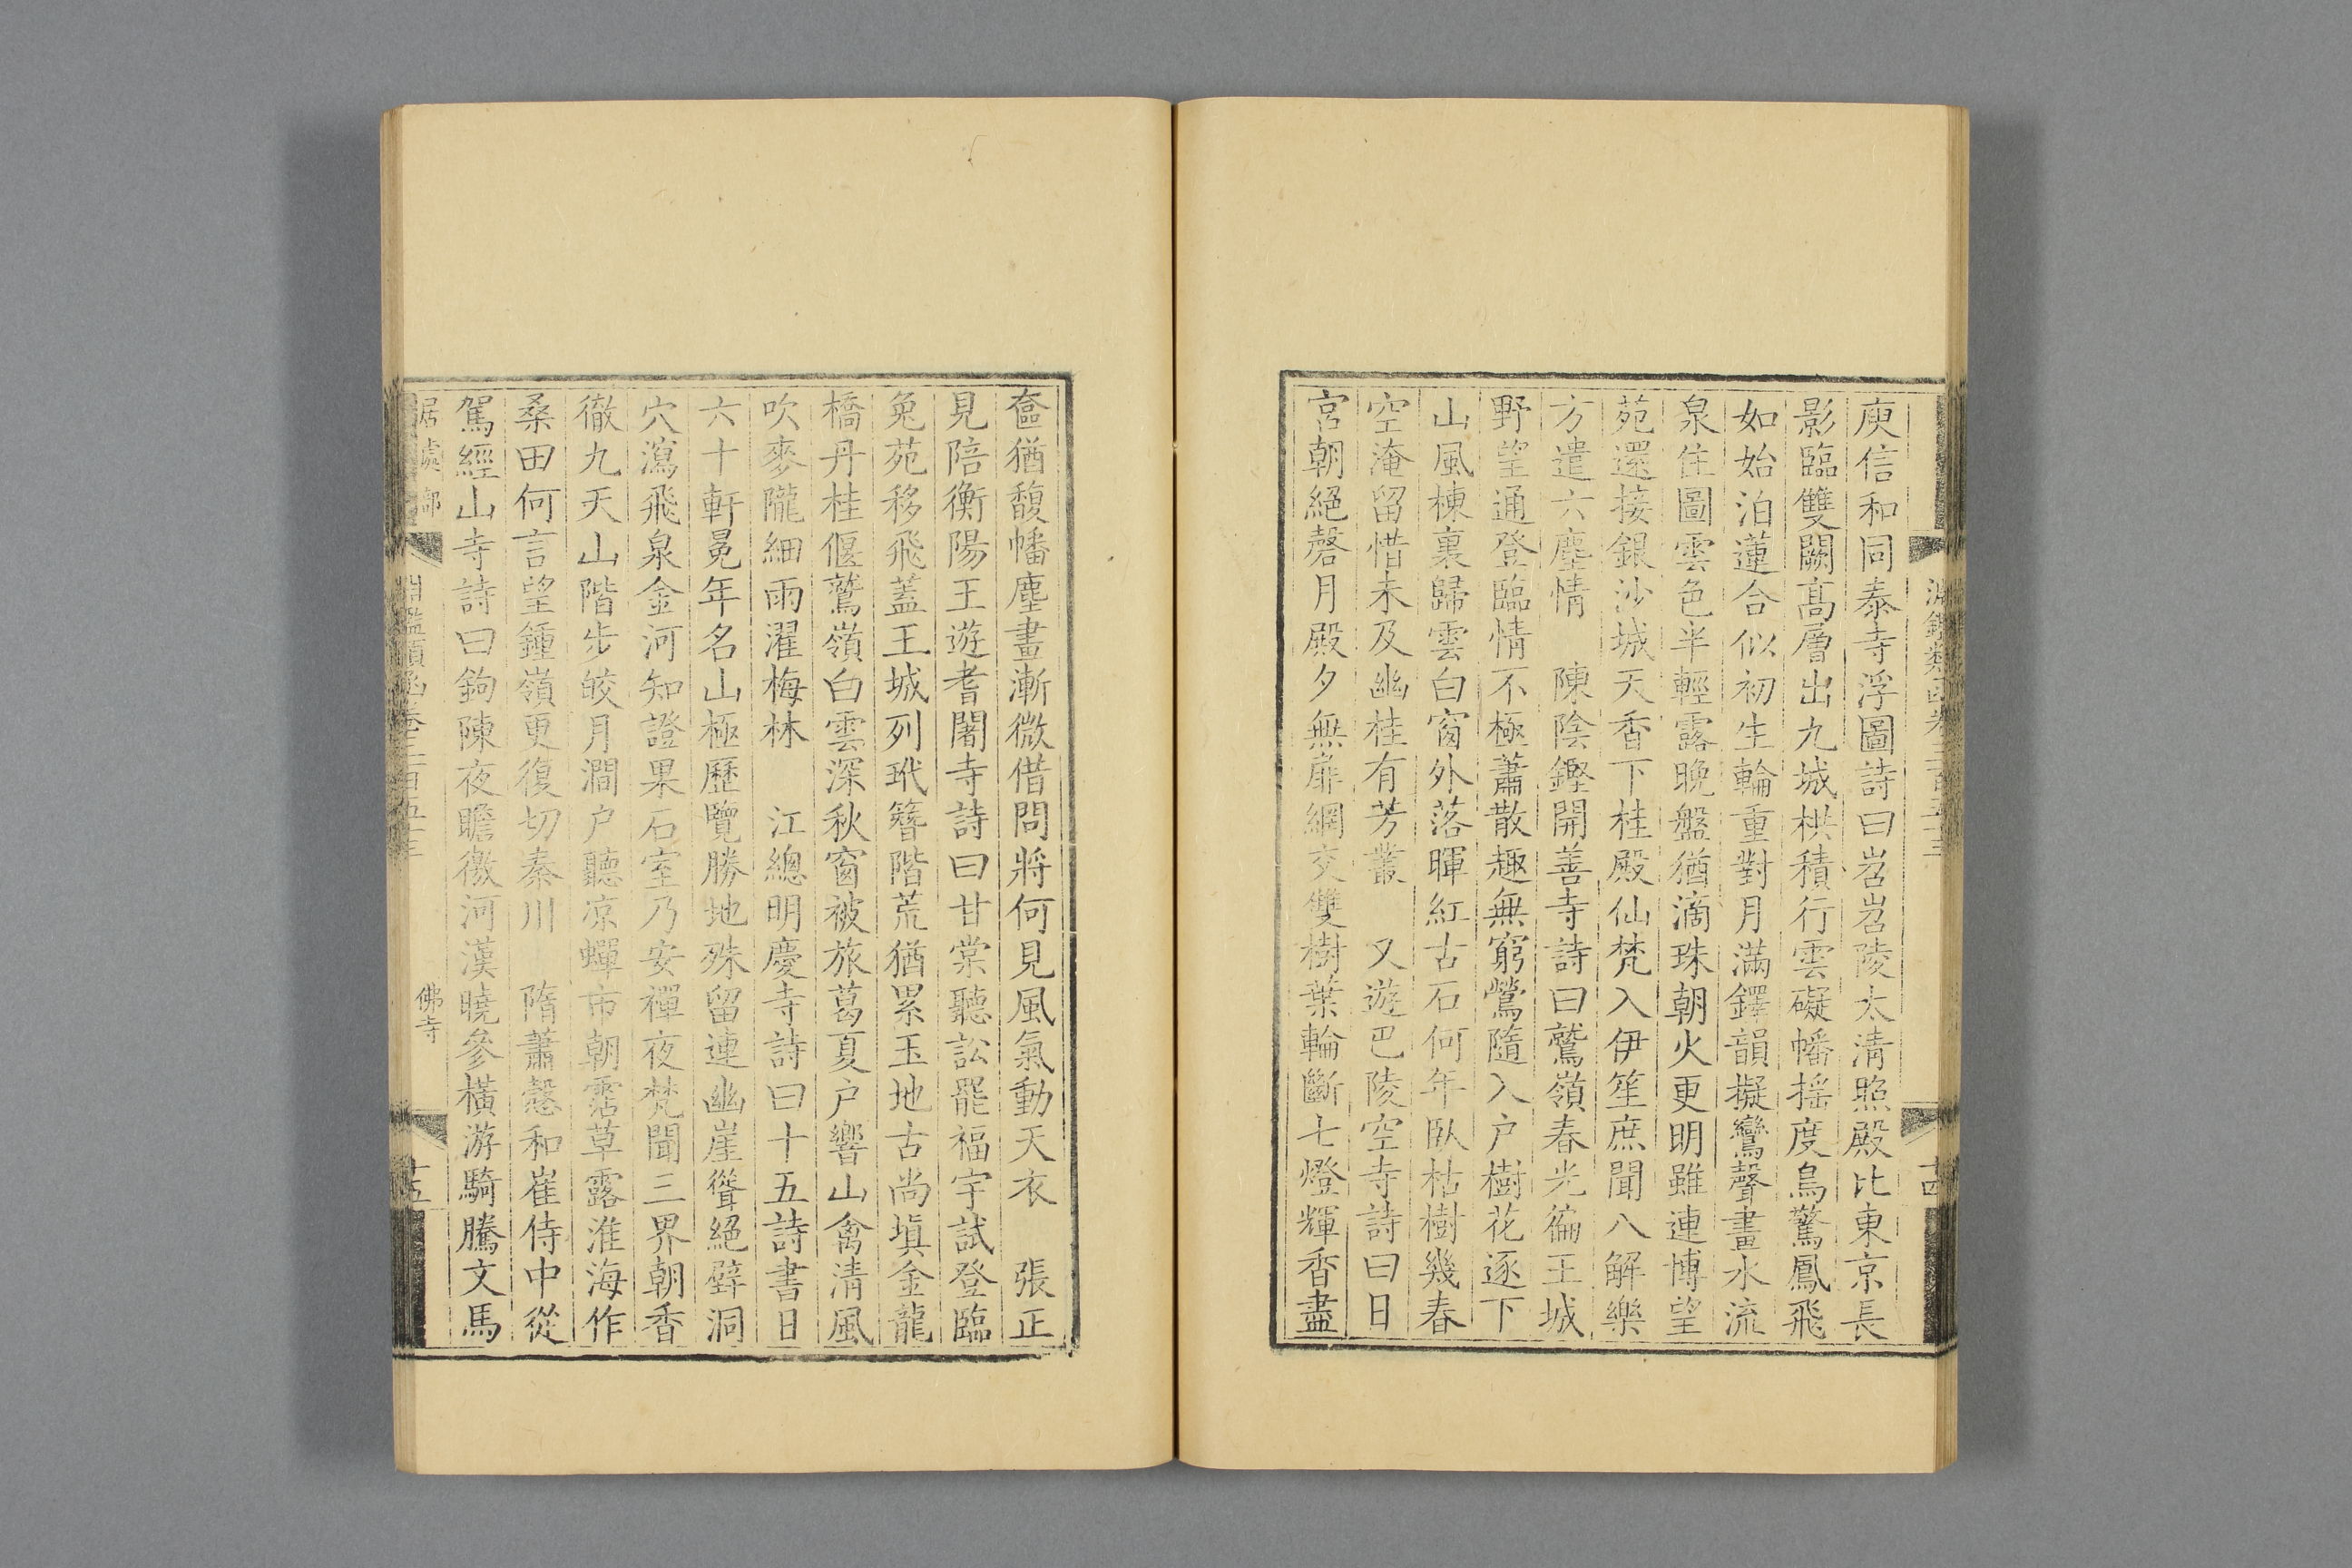 庾信和同泰寺浮圖詩曰岧岧陵太清照殿比東京長
影臨雙闕高層出九城栱積行雲礙幡搖度鳥驚鳳飛
如始泊蓮合似初生輪重對月滿鐸韻擬鸞聲畫水流
泉住圖雲色半輕露晚盤猶滴珠朝火更明雖連博望
苑還接銀沙城天香下桂殿仙梵入伊笙庶聞八解樂
方遣六塵情　陳陰鏗開善寺詩曰鷲嶺春光徧王城
野望通登臨情不極蕭散趣無窮鶯隨入户樹花逐下
山風棟裏歸雲白窗外落暉紅古石何年臥枯樹幾春
空淹留惜未及幽桂有芳叢　又遊巴陵空寺詩曰日
宮朝絕磬月殿夕無扉網交雙樹葉輪斷七燈輝香盡
奩猶馥幡塵畫漸微借問將何見風氣動天衣　張正
見陪衡陽王遊耆闍寺詩曰甘棠聽訟罷福宇試登臨
兔苑移飛蓋王城列玳簪階荒猶累玉地古尚塡金龍
橋丹桂偃鷲嶺白雲深秋窗被旅葛夏户響山禽清風
吹麥隴細雨濯梅林　江總明慶寺詩曰十五詩書日
六十軒冕年名山極歷覽勝地殊留連幽崖聳絕壁洞
穴瀉飛泉金河知證果石室乃安禪夜梵聞三界朝香
徹九天山階步皎月澗户聽凉蟬市朝霑草露淮海作
桑田何言望鍾嶺更復切秦川　隋蕭慤和崔侍中從
駕經山寺詩曰鉤陳夜瞻徼河漢曉參橫游騎騰文馬
居處部
淵鑑類函卷三百五十三
佛寺
十五